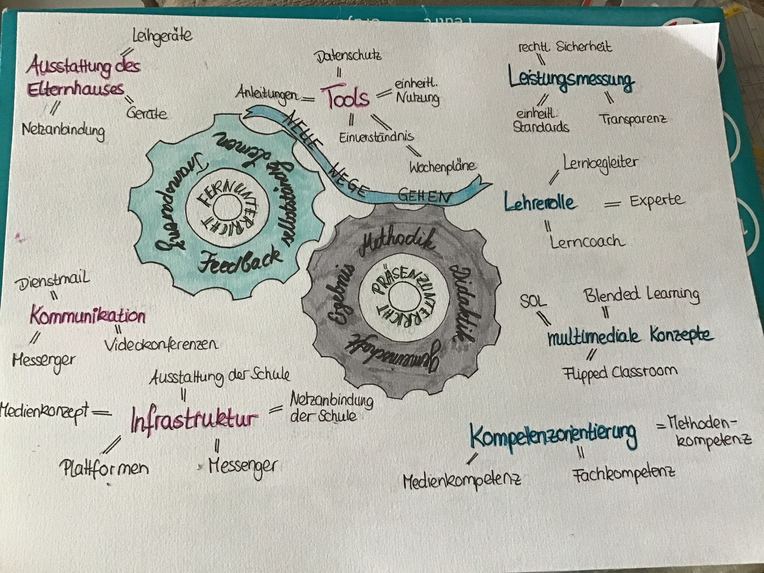 Leihgeräte
Ausstattung des
Elternhauses
Netzanbindung
Geräte
Datenschutz
Anleitungen
Tools
einheitl.
Nutzung
Einverständnis
Wochenpläne
rechtl. Sicherheit
Leistungsmessung
einheitl.
Standards
Transparenz
NEUE WEGE GEHEN
Transparenz
Feedback
FERNUNTERRICHT
Methodik
Didaktik
Gemeinschaft
Ergebnis
PRÄSENZUNTERRICHT
Lernbegleiter
Lehrerrolle
Experte
Lerncoach
Dienstmail
Kommunikation
Messenger
Videokonferenzen
SOL
Blended Learning
multimediale Konzepte
Flipped Classroom
Ausstattung der Schule
Medienkonzept
Infrastruktur
Netzanbindung
der Schule
Plattformen
Messenger
Kompetenzorientierung
Methoden-
kompetenz
Medienkompetenz
Fachkompetenz